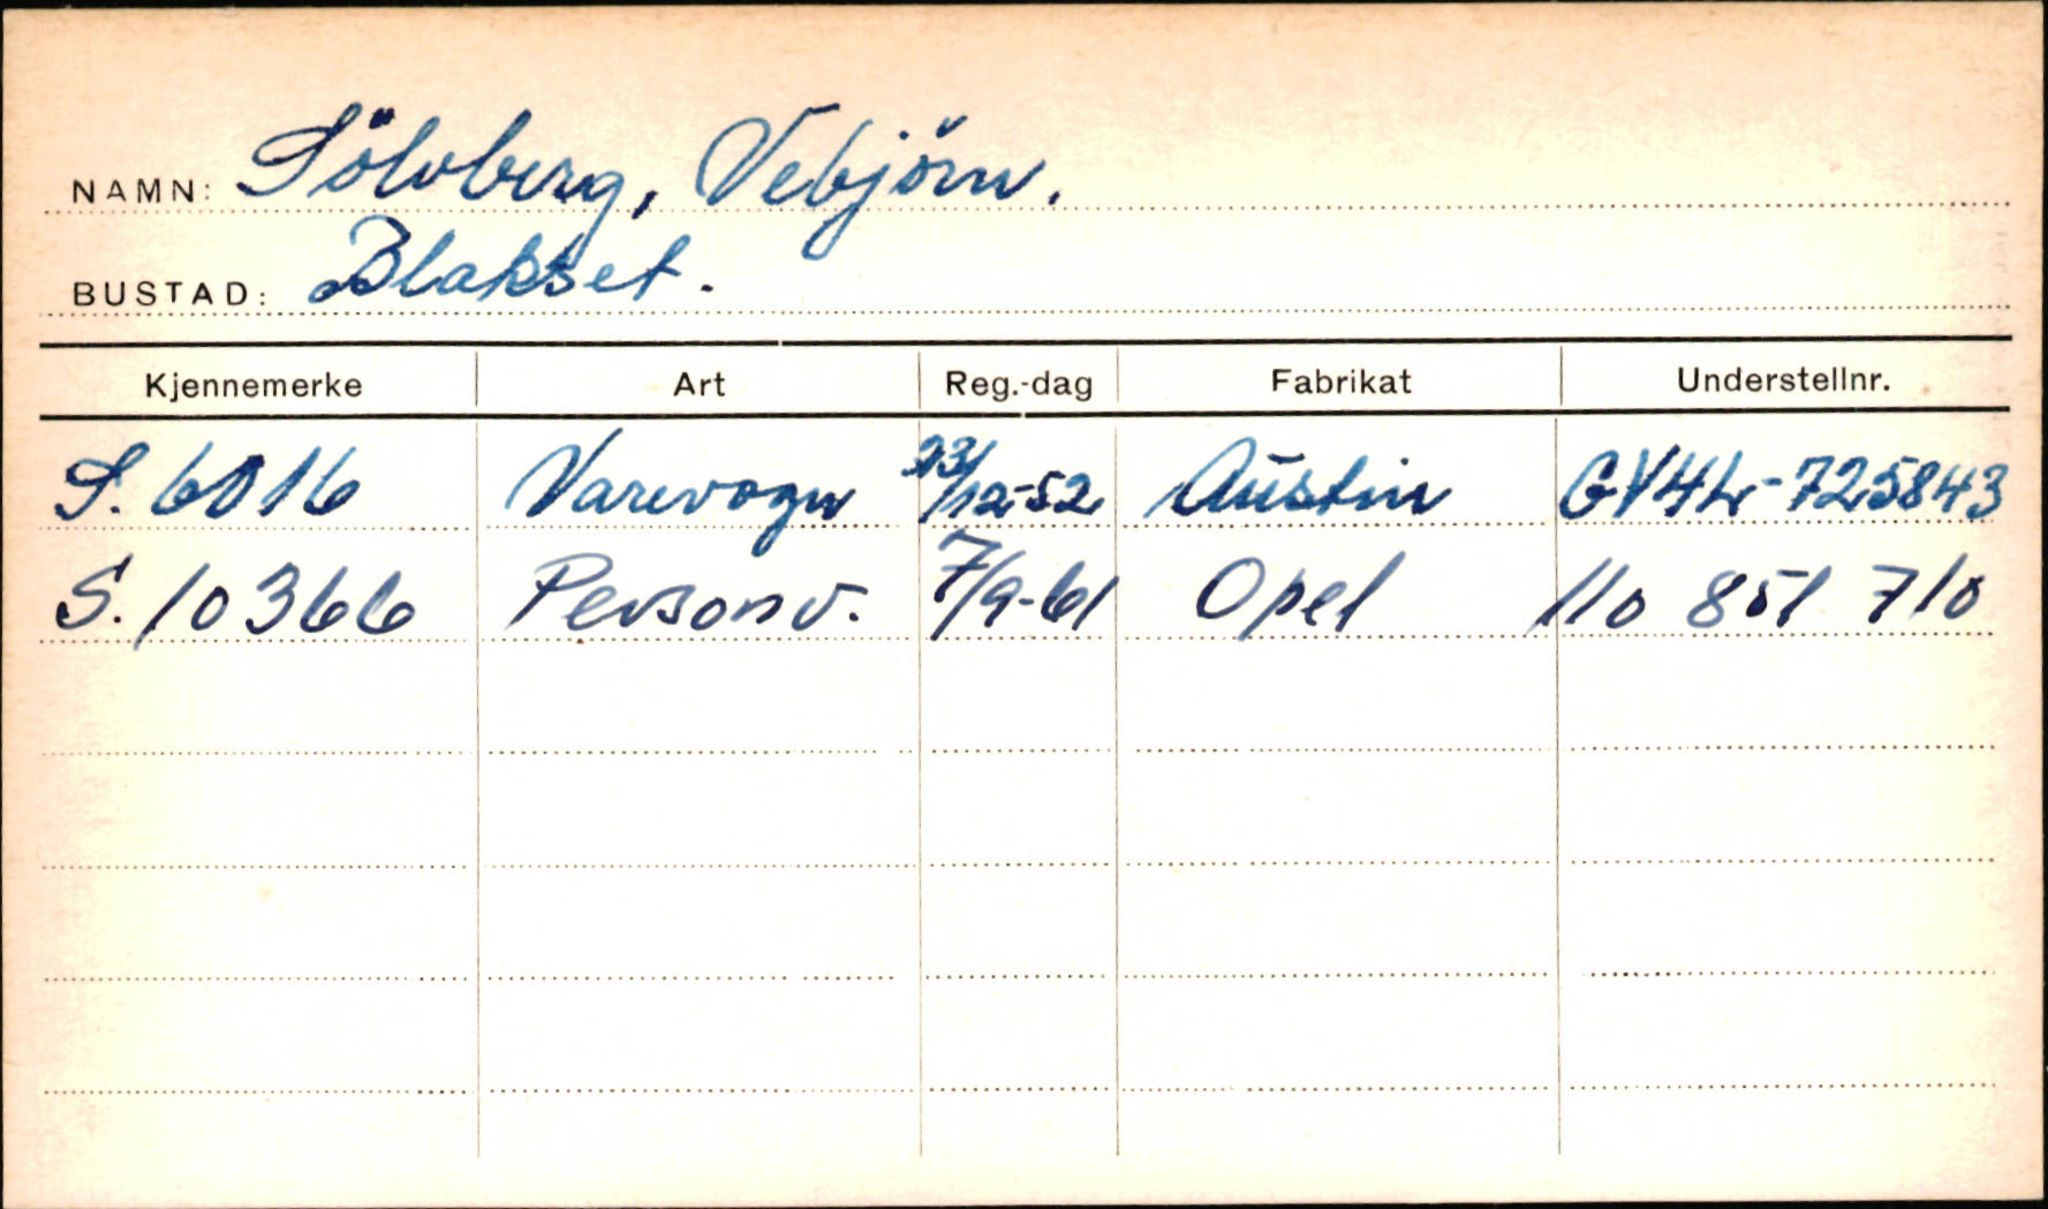 NAMN: Sölvberg, Vebjörn.
BUSTAD: Blakset.
Kjennemerke Art Reg.-dag Fabrikat Understellnr.
S. 6016 Varevogn 23/12-52 Austin GV4L-725843
S. 10366 Personv. 7/9-61 Opel 110 851 710